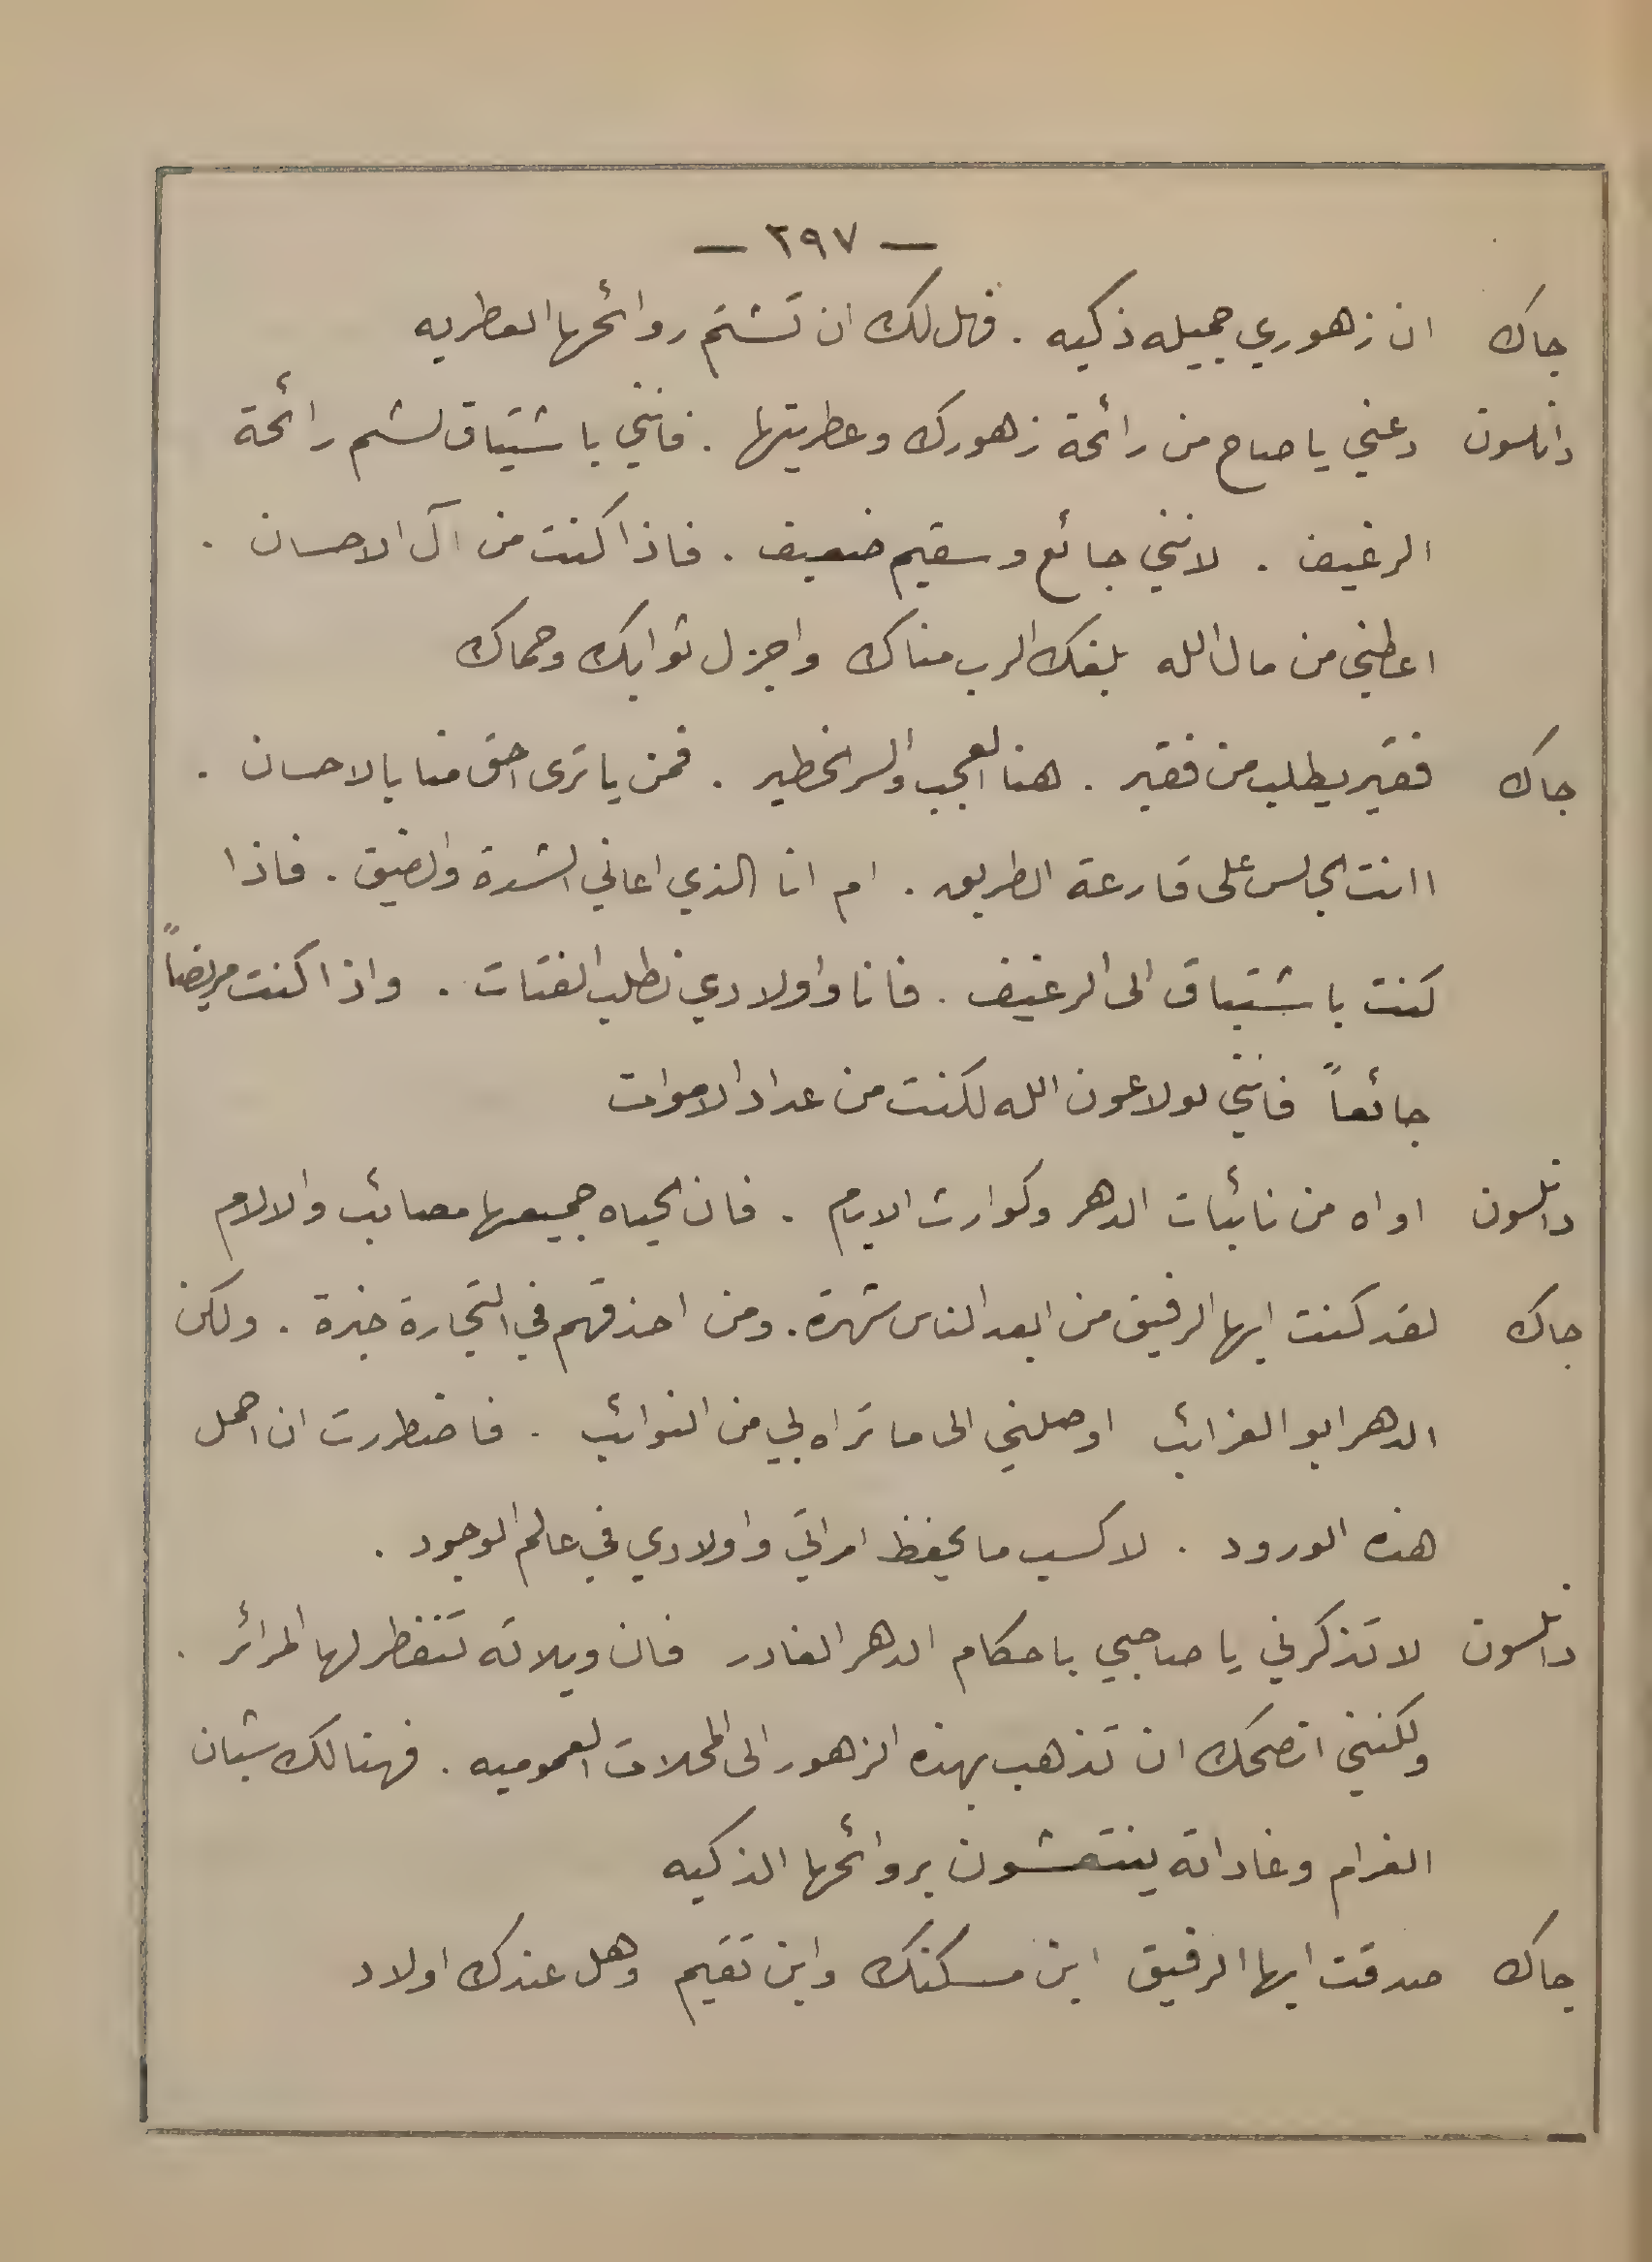 — ٢٩٧ —
جاك ان زهوري جميله ذكيه . فهل لك ان تشتم روائحها العطريه
دانلسون دعني يا صاح من رائحة زهورك وعطريتها . فانني باشتياق لشم رائحة
الرغيف . لانني جائع وسقيم ضعيف . فاذا كنت من آل الاحسان .
اعطني من مال الله بلغك الرب مناك واجزل ثوابك وحماك
جاك فقير يطلب من فقير . هنا العجب والسر الخطير . فمن يا ترى احق منا بالاحسان .
اانت الجالس على قارعة الطريق . ام انا الذي اعاني الشدة والضيق . فاذا
كنت باشتياق الى الرغيف . فانا واولادي نطلب الفتات . واذا كنت مريضاً
جائعاً فانني لولا عون الله لكنت من عداد الاموات
دانلسون اواه من نائبات الدهر وكوارث الايام . فان الحياه جميعها مصائب والالام
جاك لقد كنت ايها الرفيق من ابعد الناس شهرة . ومن احذقهم في التجارة خبرة . ولكن
الدهر ابو الغرائب اوصلني الى ما تراه لي من النوائب . فاضطررت ان احمل
هذه الورود . لاكسب ما يحفظ امراتي واولادي في عالم الوجود .
دانلسون لا تذكرني يا صاحبي باحكام الدهر الغادر فان ويلاته تتفطر لها المرائر .
ولكنني انصحك ان تذهب بهذه الزهور الى المحلات العموميه . فهنالك شبان
الغرام وغاداته ينتعشون بروائحها الذكيه
جاك صدقت ايها الرفيق اين مسكنك واين تقيم وهل عندك اولاد